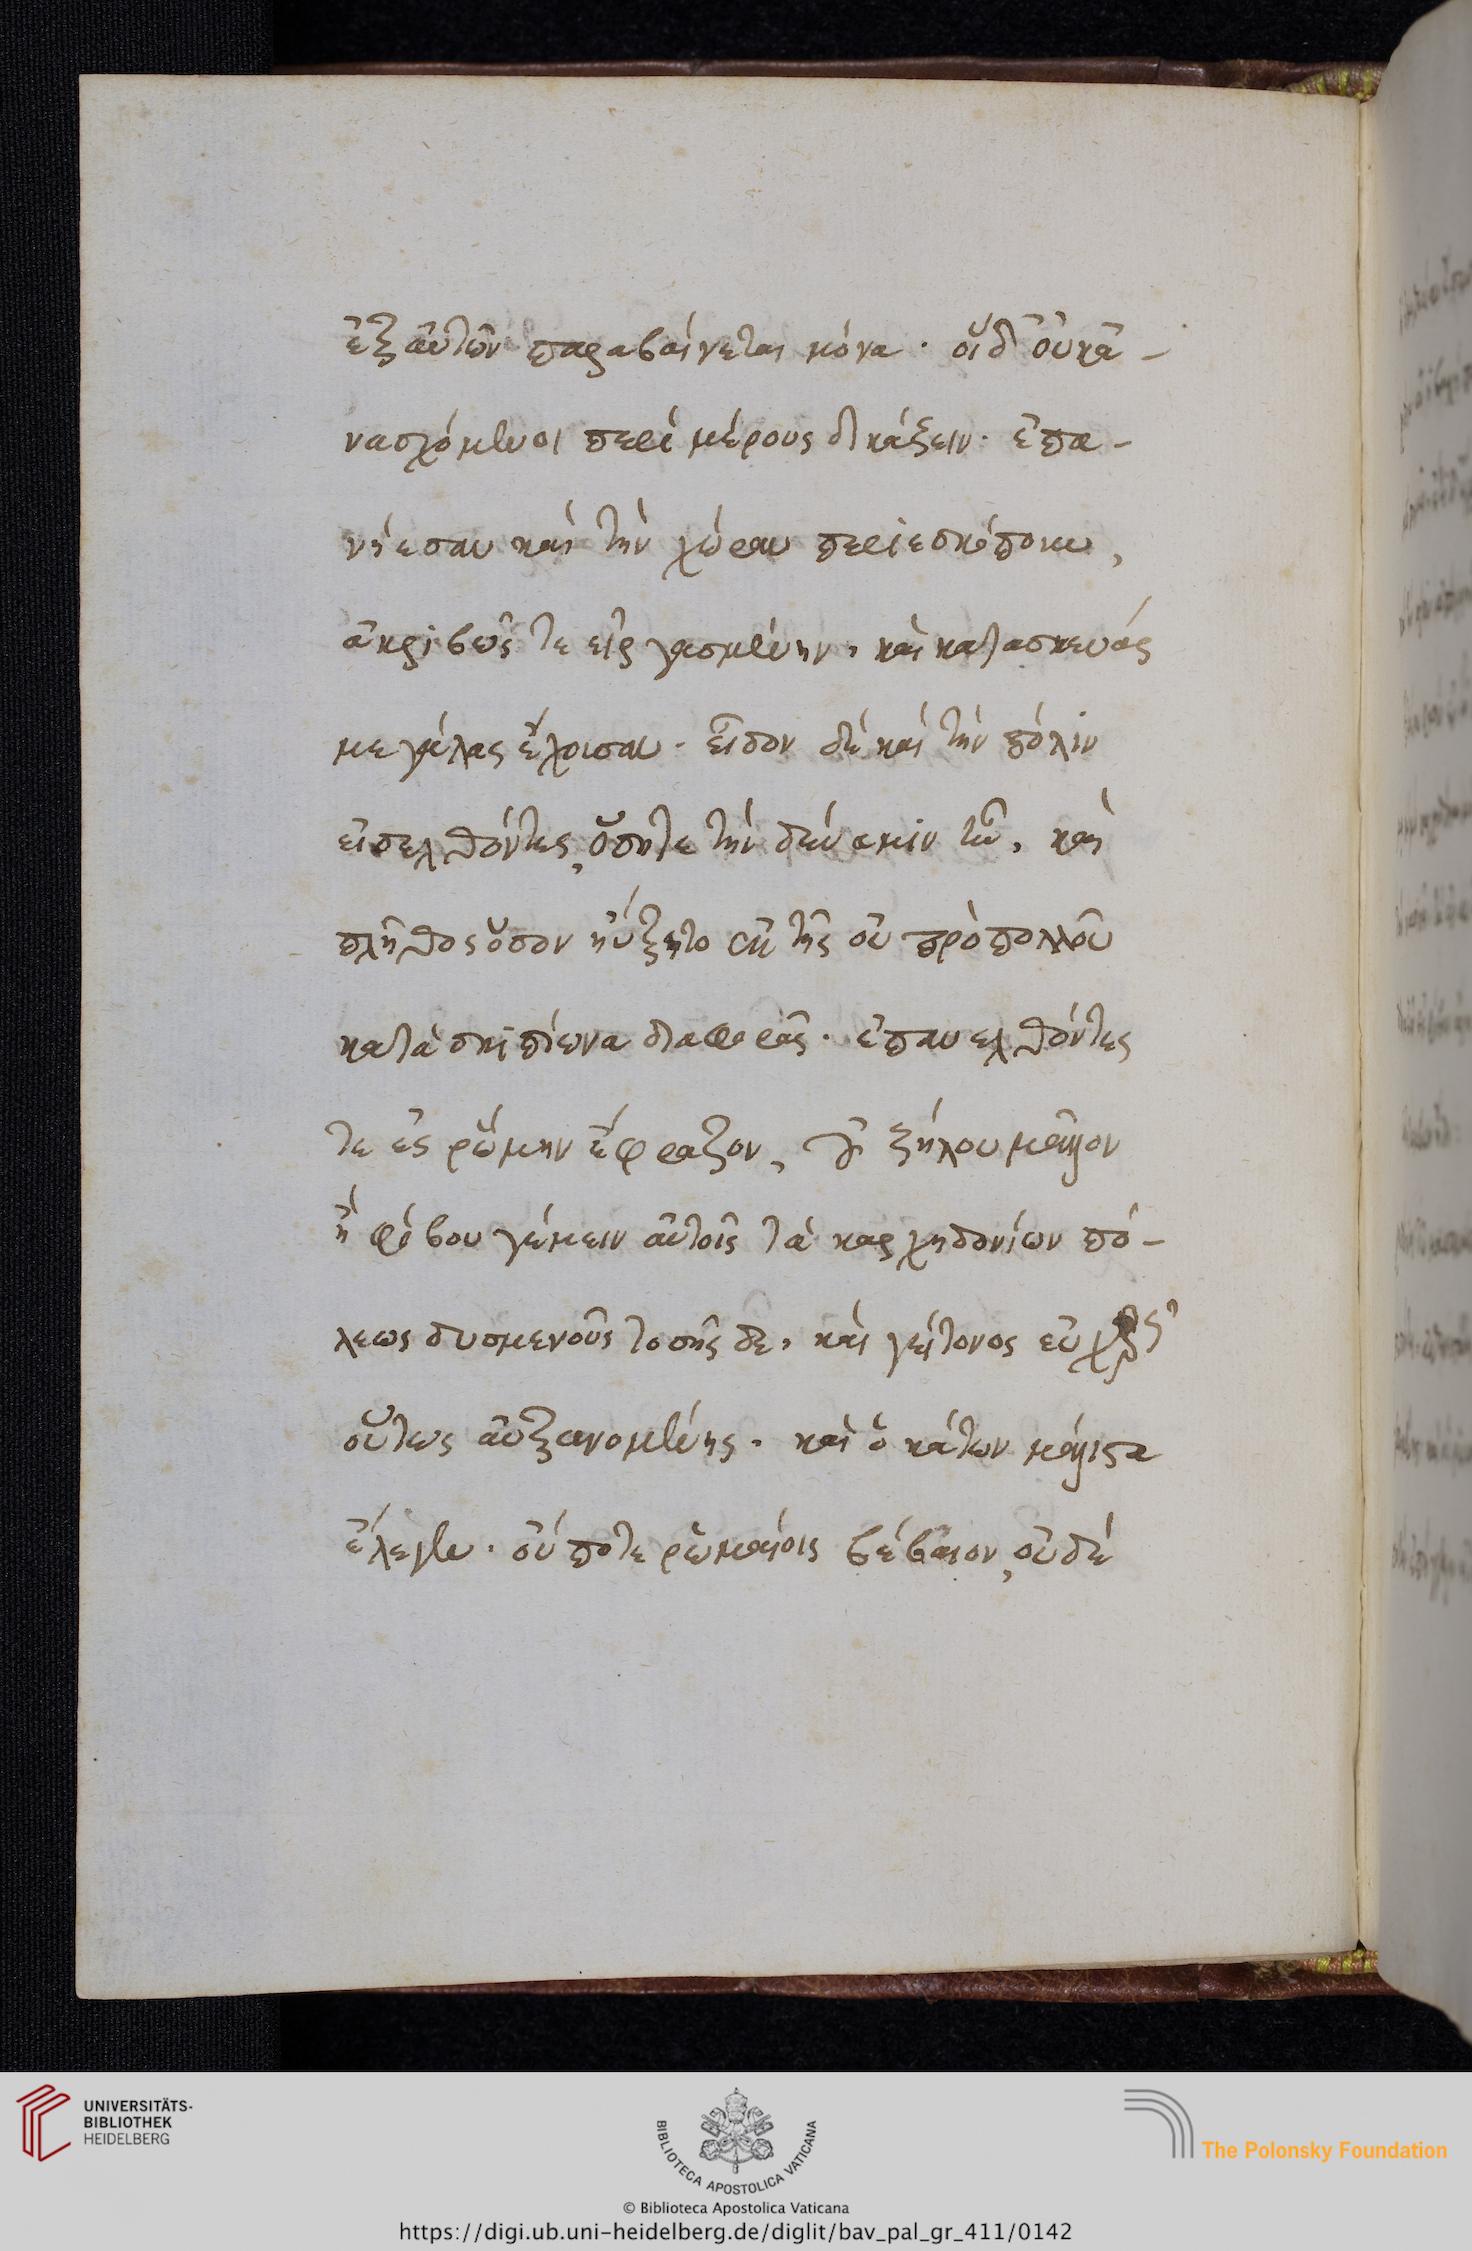 ἐξ αὐτῶν παραβαίνεται μόνα. οἱ δ' οὐκ ἀ-
νασχόμενοι περὶ μέρους δικάζειν. ἐπα-
νήεσαν καὶ τὴν χώραν περιεσκόπουν,
ἀκριβῶς τε εἰργασμένην, καὶ κατασκευὰς
μεγάλας ἔχουσαν. εἶδον δὲ καὶ τὴν πόλιν
εἰσελθόντες, ὅση τε τὴν δύναμιν ἦν, καὶ
πλῆθος ὅσον ηὔξητο ἐκ τῆς οὐ πρὸ πολλοῦ
κατὰ σκιπίωνα διαφθορᾶς. ἐπανελθόντες
τε ἐς ῥώμην ἔφραζον, οὐ ζήλου μᾶλλον
ἢ φόβου γέμειν αὐτοῖς τὰ καρχηδονίων πό-
λεως δυσμενοῦς τοσῆσδε, καὶ γείτονος εὐχερῶς
οὕτως αὐξανομένης. καὶ ὁ κάτων μάλιστα
ἔλεγεν. οὔποτε ῥωμαίοις βέβαιον, οὐδὲ
UNIVERSITÄTS-
BIBLIOTHEK
HEIDELBERG
BIBLIOTECA APOSTOLICA VATICANA
The Polonsky Foundation
© Biblioteca Apostolica Vaticana
https://digi.ub.uni-heidelberg.de/diglit/bav_pal_gr_411/0142